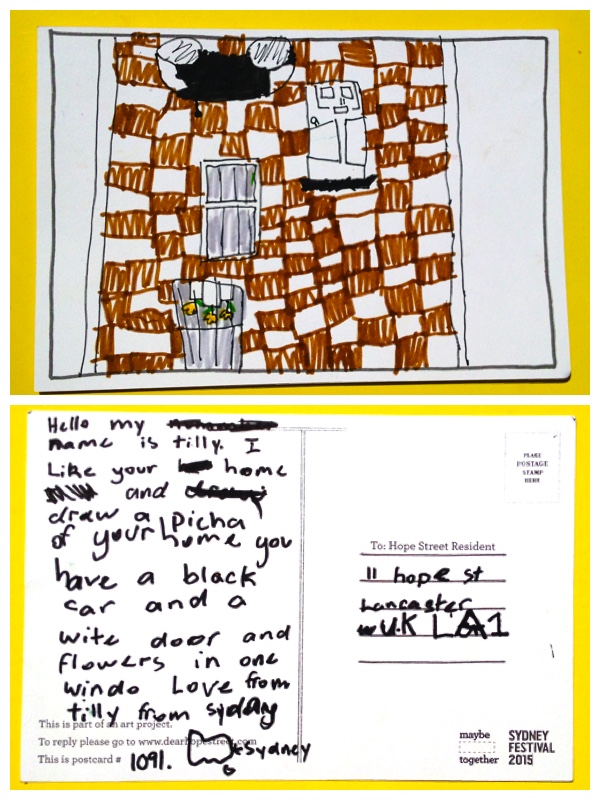 Hello my
name is tilly. I
Like your home
and
draw a Picha
of your home you
have a black
car and a
wite door and
flowers in one
windo Love from
tilly from sydday
This is part of an art project.
To reply please go to www.dearhopestreet.com
This is postcard # 1091.
Sydney
PLEASE
POSTAGE
STAMP
HERE
To: Hope Street Resident
11 hope st
Lancaster
U.K LA1
maybe
together
SYDNEY
FESTIVAL
2015